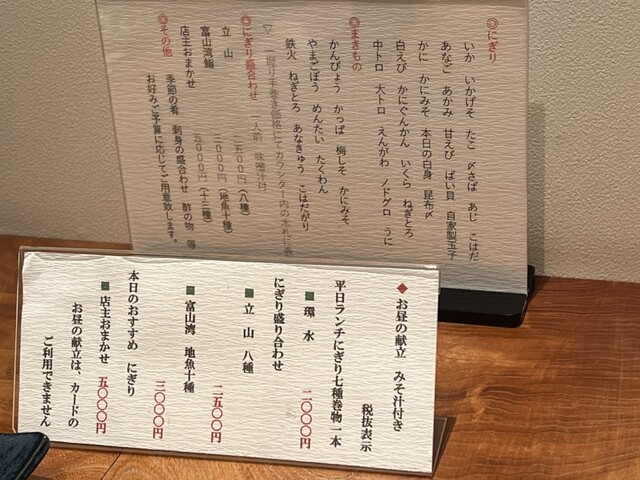 ◎にぎり
いか いかげそ たこ 〆さば あじ こはだ
あなご あかみ 甘えび ばい貝 自家製玉子
かに かにみそ 本日の白身 昆布〆
白えび かにぐんかん いくら ねぎとろ
中トロ 大トロ えんがわ ノドグロ うに
◎まきもの
かんぴょう かっぱ 梅しそ かにみそ
やまごぼう めんたい たくわん
鉄火 ねぎとろ あなきゅう こはだがり
◎にぎり盛合わせ 一人前 味噌汁付
立山 二五〇〇円(八種)
富山湾鮨 三〇〇〇円(地魚十種)
店主おまかせ 五〇〇〇円(十三種)
◎その他
季節の肴 刺身の盛合わせ 酢の物 等
お好みご予算に応じてご用意致します。
◆お昼の献立 みそ汁付き
税抜表示
平日ランチにぎり七種巻物一本
■環水 二〇〇〇円
にぎり盛り合わせ
■立山 八種 二五〇〇円
■富山湾 地魚十種 三〇〇〇円
本日のおすすめ にぎり
■店主おまかせ 五〇〇〇円
お昼の献立は、カードの
ご利用できません